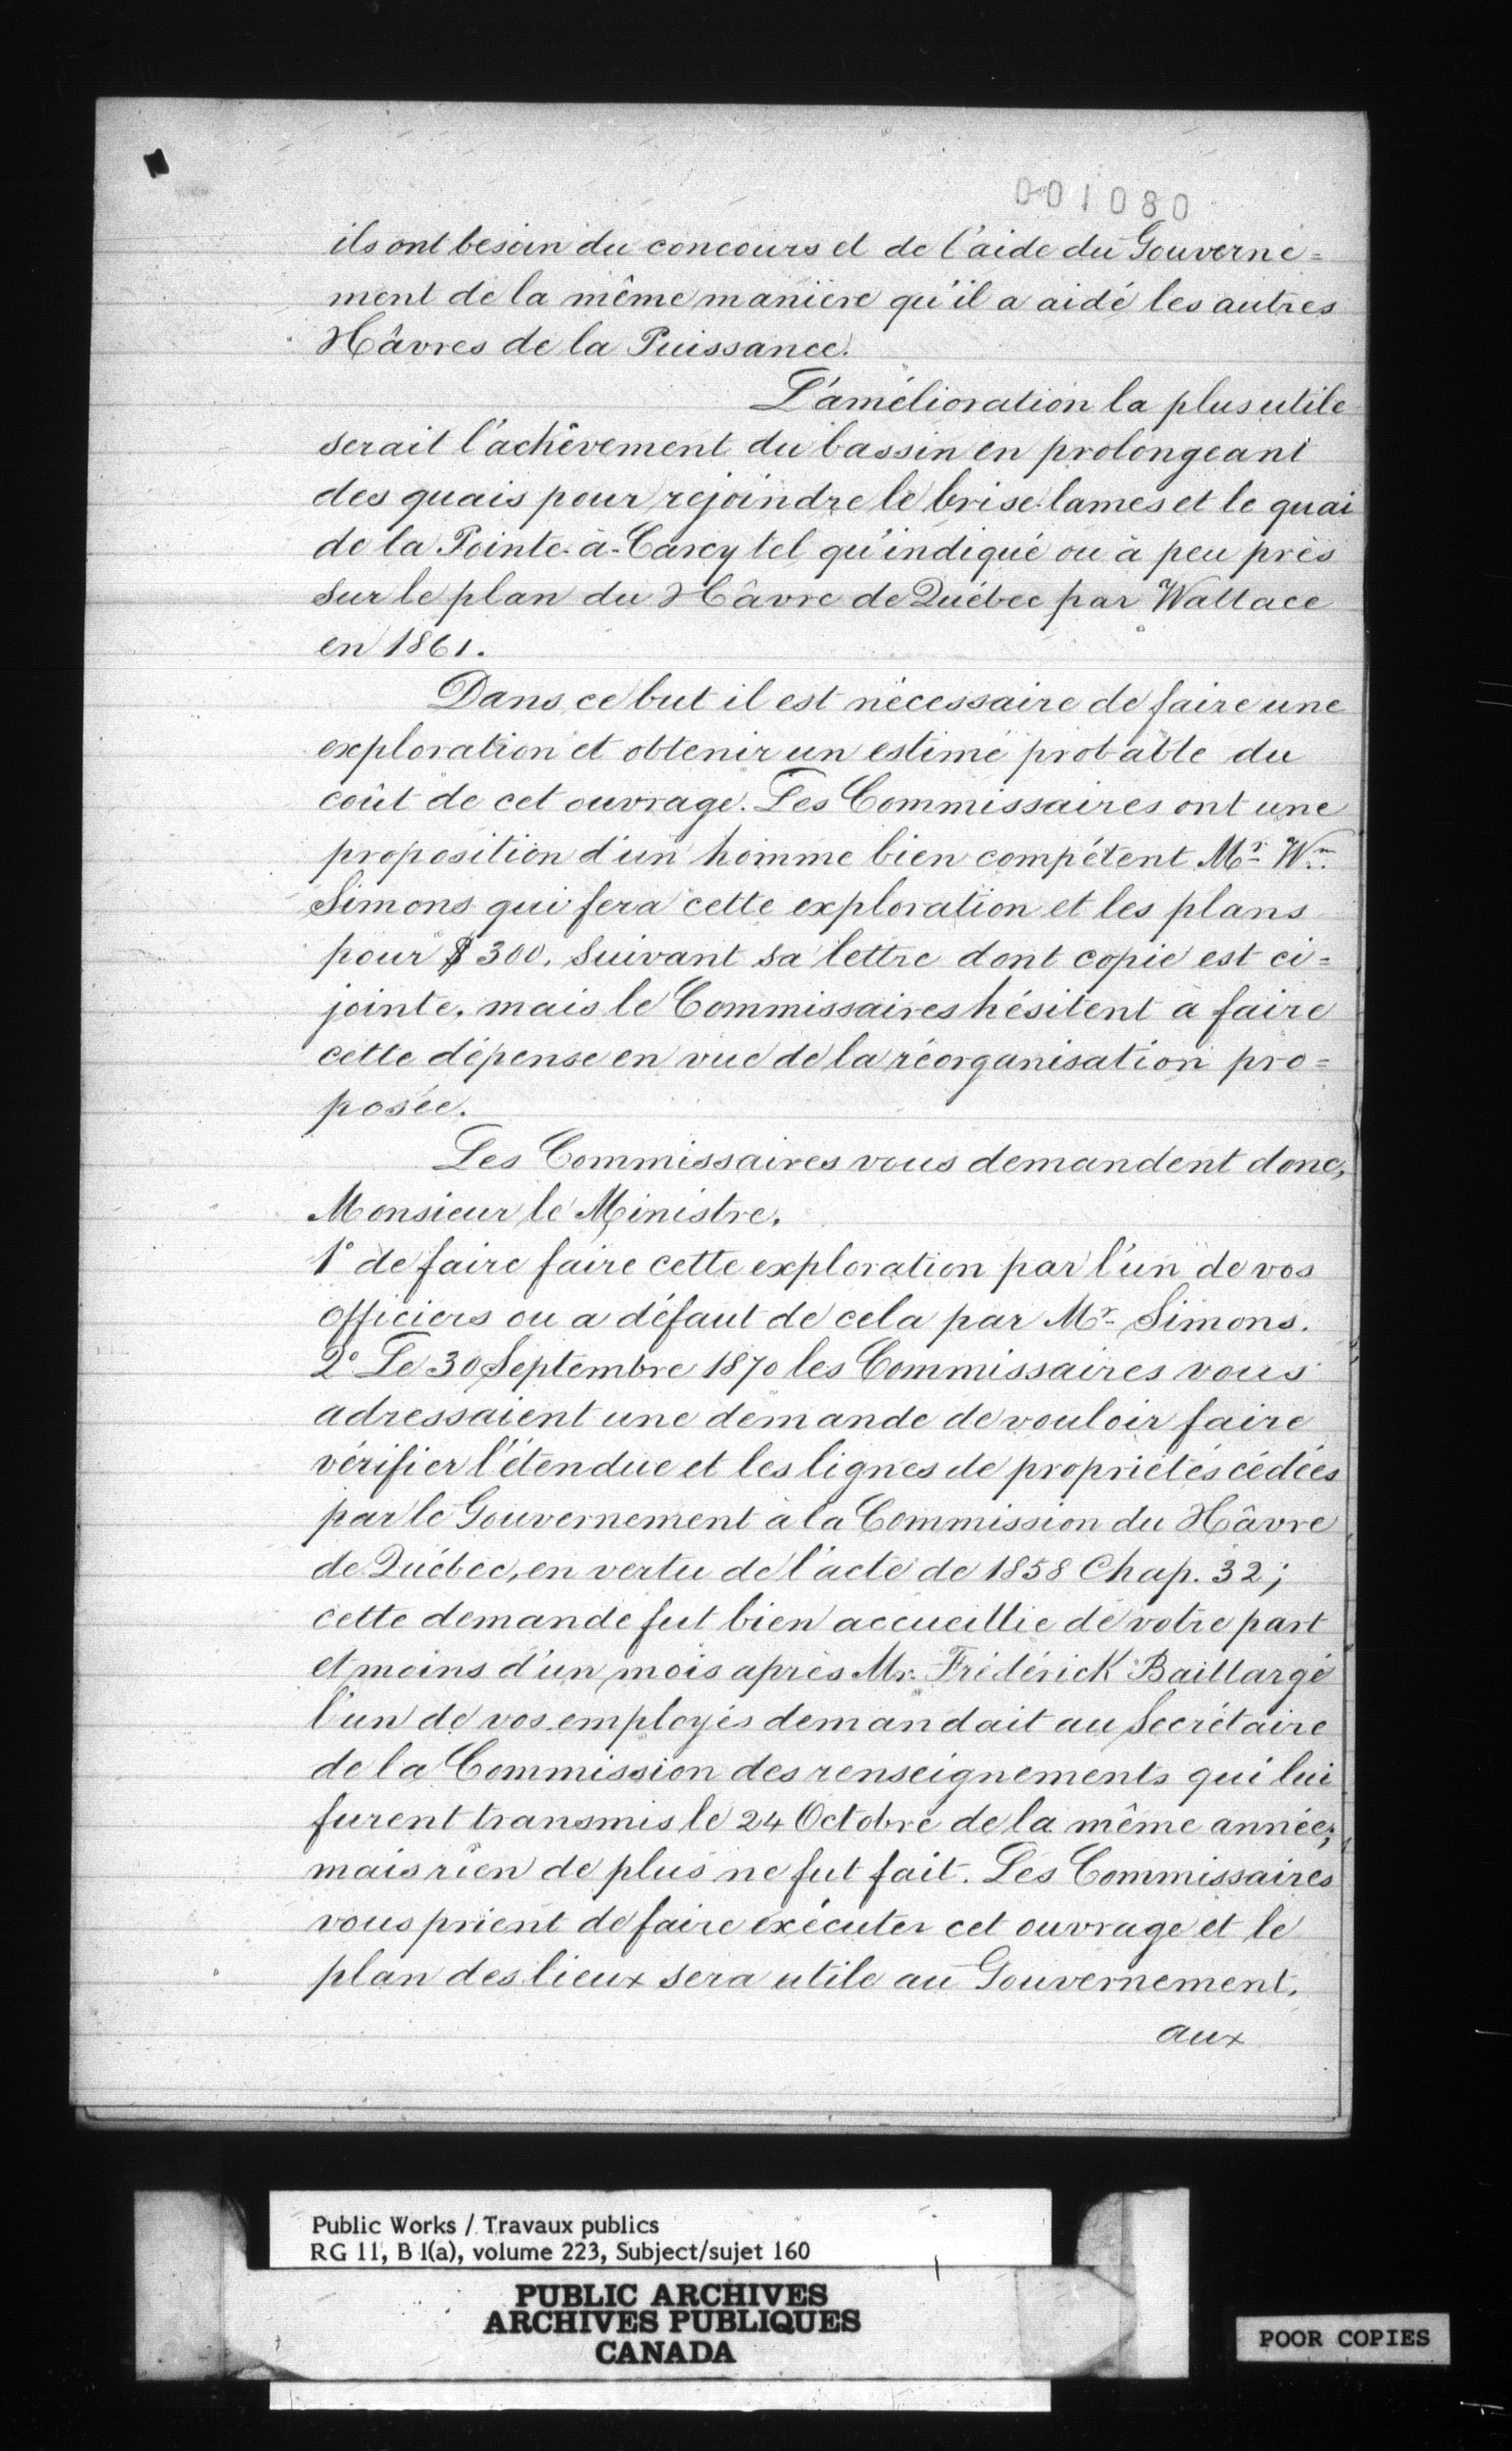 001080
ils ont besoin du concours et de l'aide du Gouverne=
ment de la même manière qu'il a aidé les autres
Hâvres de la Puissance.
L'amélioration la plus utile
serait l'achêvement du bassin en prolongeant
des quais pour rejoindre le brise-lames et le quai
de la Pointe-à-Carcy tel qu'indiqué ou à peu près
sur le plan du Hâvre de Québec par Wallace
en 1861.
Dans ce but il est nécessaire de faire une
exploration et obtenir un estimé probable du
coût de cet ouvrage. Les Commissaires ont une
proposition d'un homme bien compétent Mr. Wm.
Simons qui fera cette exploration et les plans
pour $300. suivant sa lettre dont copie est ci=
jointe, mais le Commissaires hésitent à faire
cette dépense en vue de la réorganisation pro=
posée.
Les Commissaires vous demandent donc,
Monsieur le Ministre,
1° de faire faire cette exploration par l'un de vos
officiers ou a défaut de cela par Mr. Simons.
2° Le 30 Septembre 1870 les Commissaires vous
adressaient une demande de vouloir faire
vérifier l'étendue et les lignes de propriétés cédées
par le Gouvernement à la Commission du Hâvre
de Québec, en vertu de l'acte de 1858 Chap. 32;
cette demande fut bien accueillie de votre part
et moins d'un mois après Mr. Frédérick Baillargé
l'un de vos employés demandait au Secrétaire
de la Commission des renseignements qui lui
furent transmis le 24 Octobre de la même année;
mais rien de plus ne fut fait. Les Commissaires
vous prient de faire exécuter cet ouvrage et le
plan des lieux sera utile au Gouvernement,
aux
Public Works / Travaux publics
RG 11, B 1(a), volume 223, Subject/sujet 160
PUBLIC ARCHIVES
ARCHIVES PUBLIQUES
CANADA
POOR COPIES